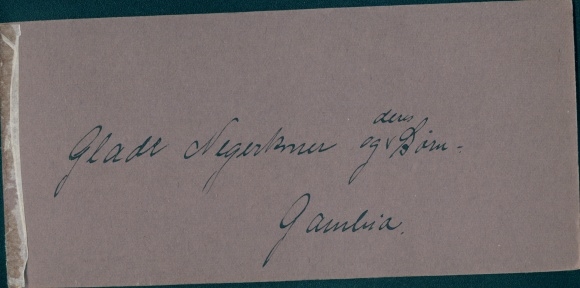 Glade Negerkoner og deres Børn.
Gambia.